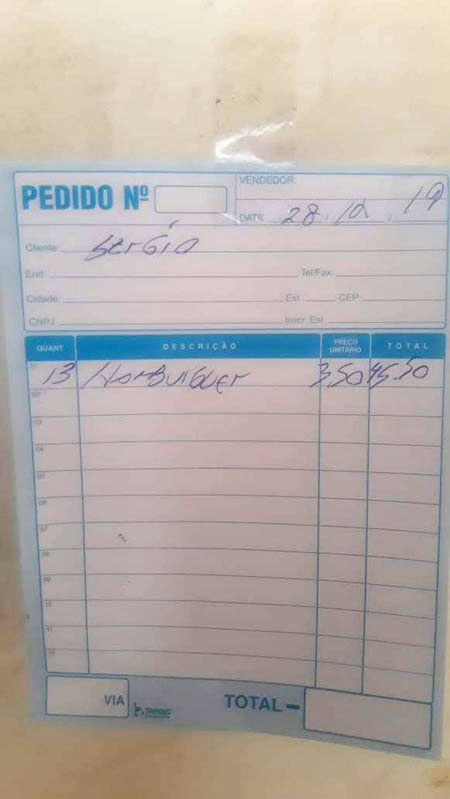 PEDIDO Nº
VENDEDOR:
DATA 28.10.19
Cliente: Sergio
End Tel/Fax:
Cidade: Est CEP
CNPJ Inscr. Est
QUANT. DESCRIÇÃO PREÇO UNITÁRIO TOTAL
01 13 Hamburguer 3,50 45.50
02
03
04
05
06
07
08
09
10
11
12
VIA TOTAL